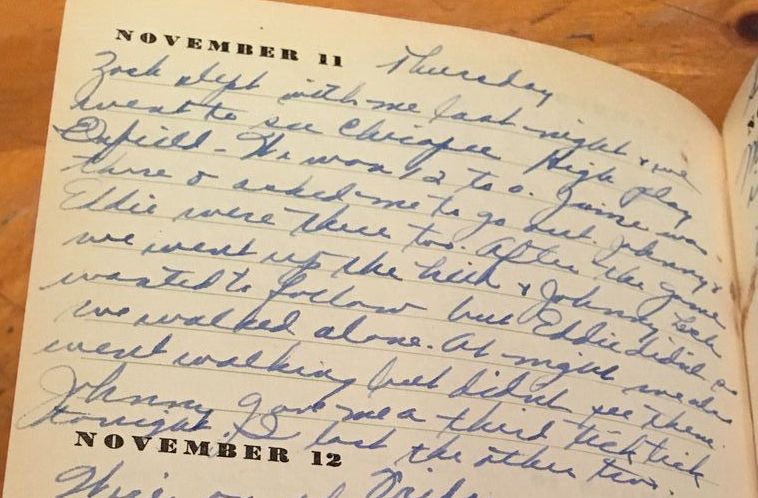 NOVEMBER 11 Thursday
Zosh slept with me last night & we
went to see Chicopee High play
Enfield - We won 12 to 0. Jamie was
there & asked me to go out. Johnny &
Eddie were there too. After the game
we went up the hill & Johnny
wanted to follow but Eddie didn't so
we walked alone. At night we also
went walking but didn't see them.
Johnny gave me a third tick tick
tonight. I lost the other two.
NOVEMBER 12